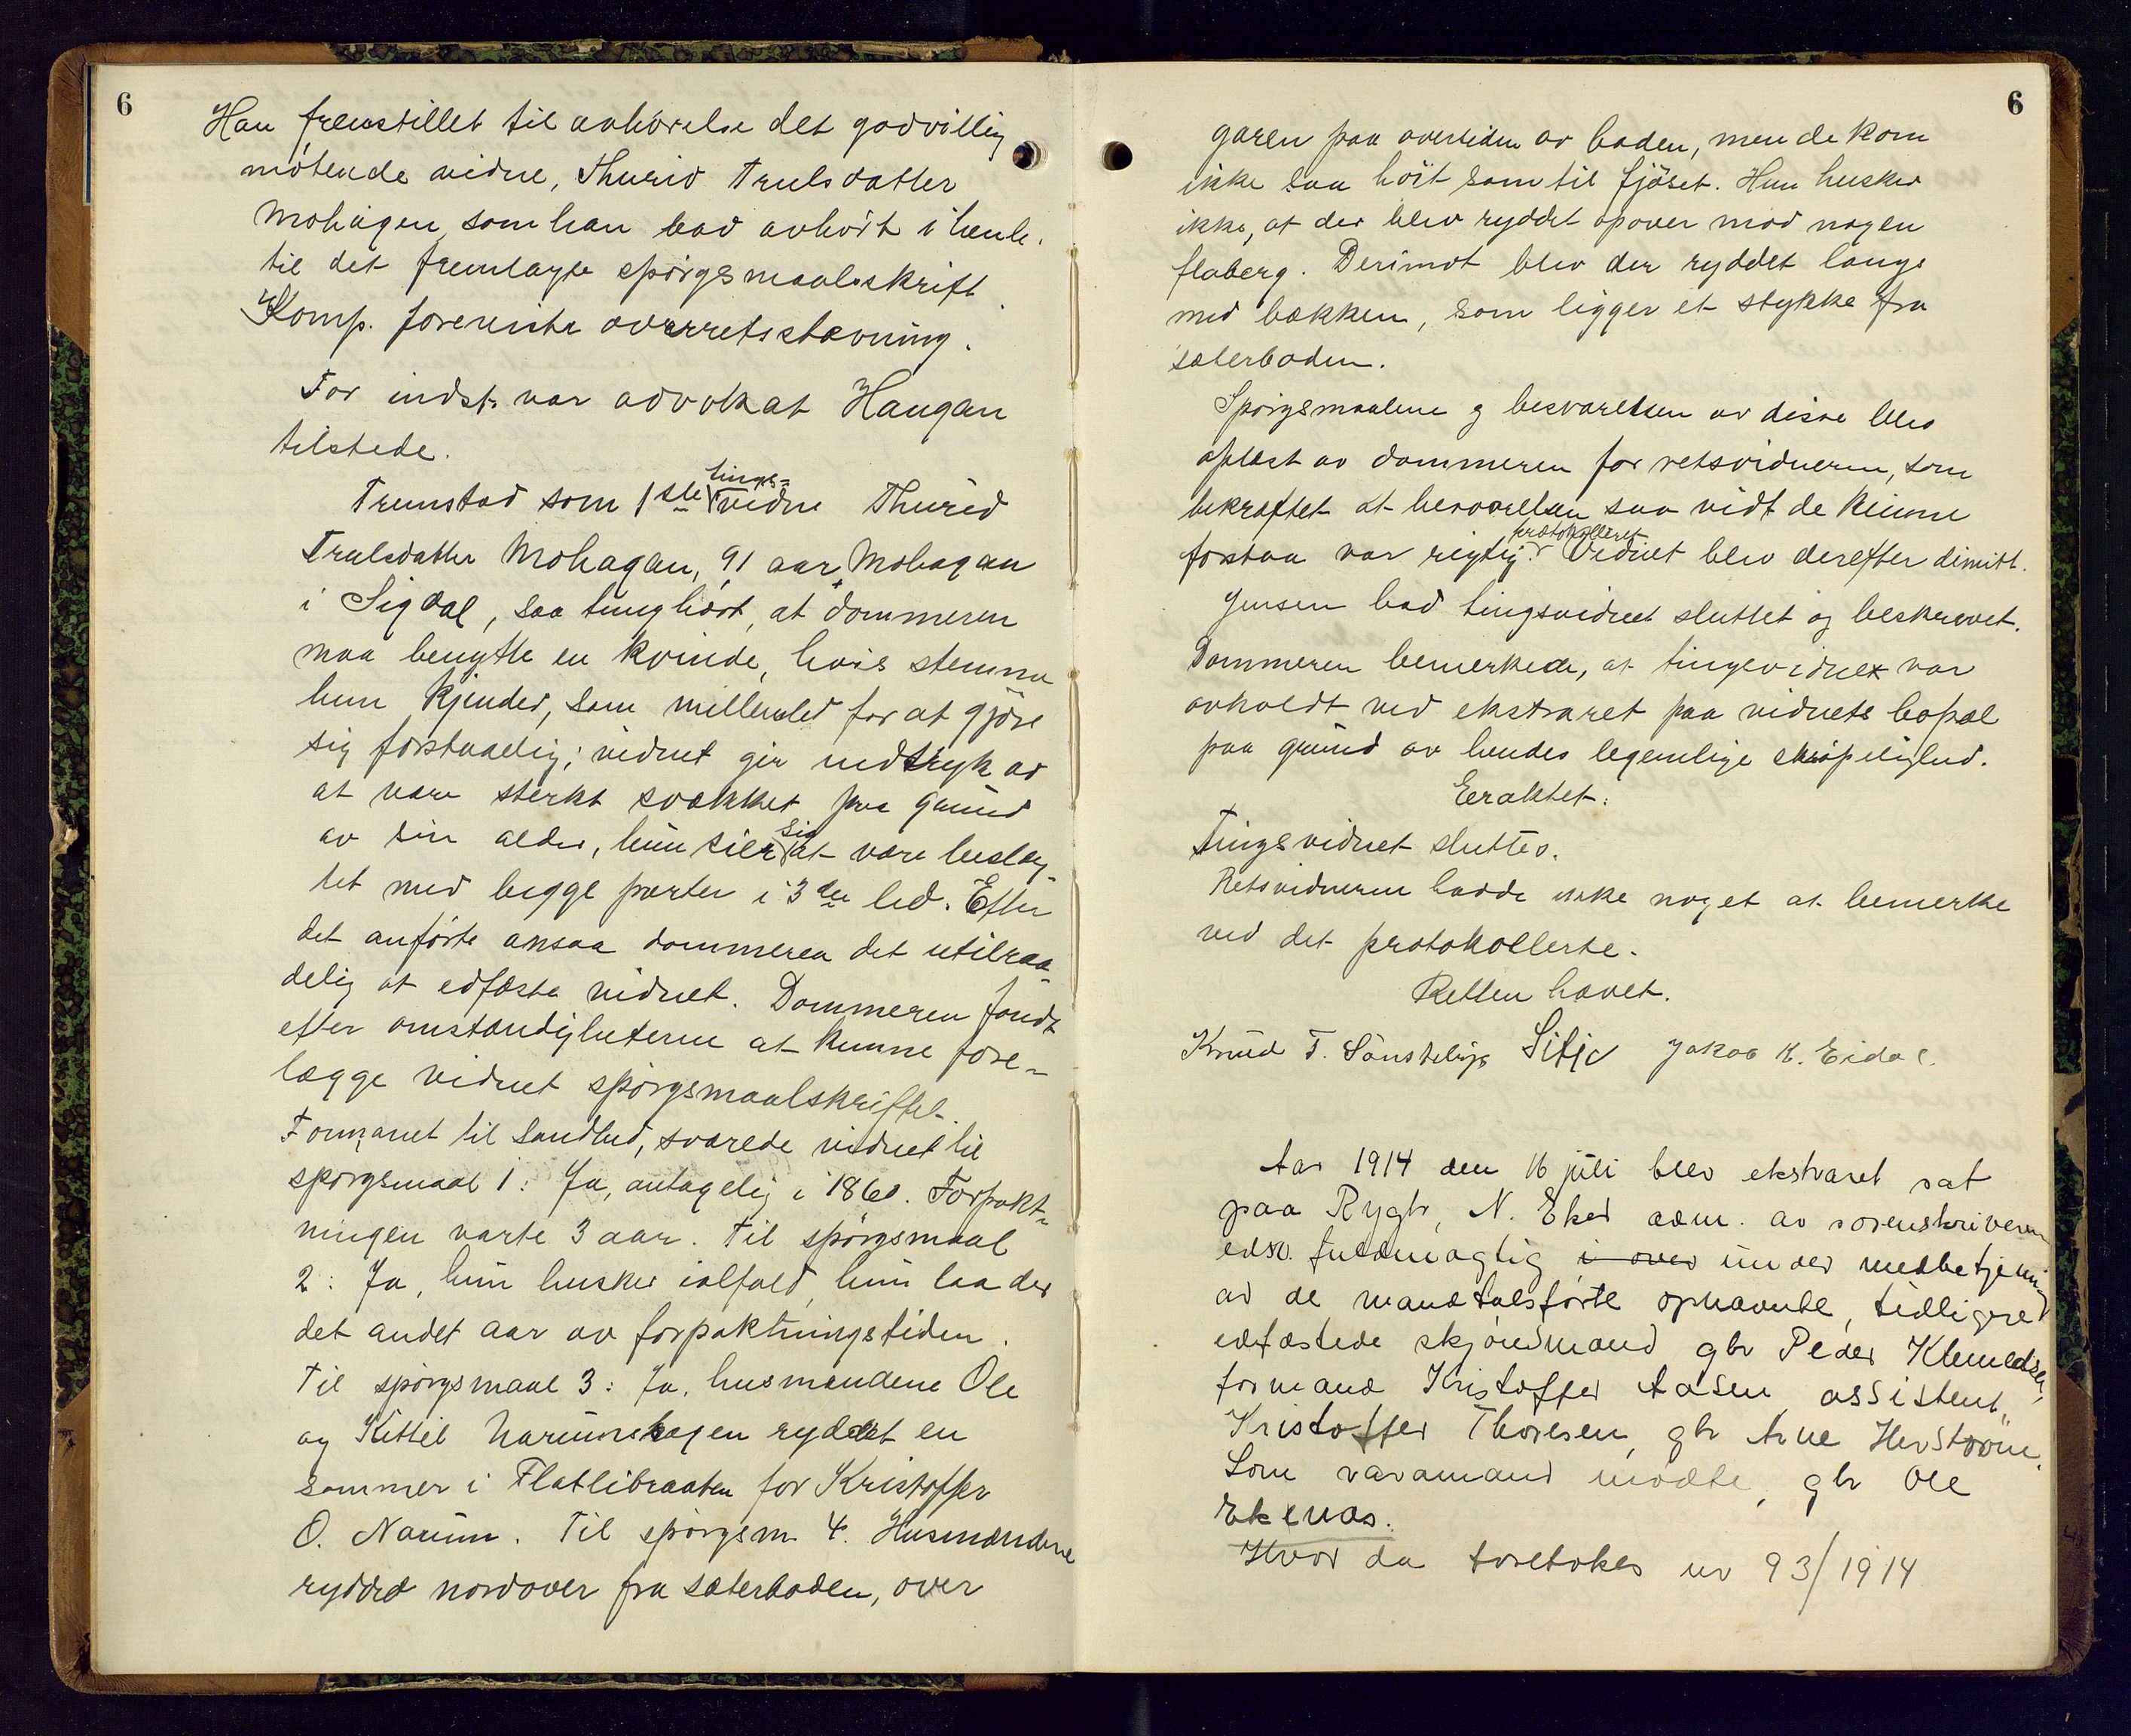 6
Han fremstillet til avhörelse det godvillig
mötende vidne, Thurid Trulsdatter
Mohagen, som han bad avhört i henh.
til det fremlagte spörgsmaalsskrift.
Komp. foreviste overretsstævning.
For indst. var advokat Haugan
tilstede.
Fremstod som 1ste tings-vidne Thurid
Trulsdatter Mohagan, 91 aar, Mohagan
i Sigdal, saa tunghört, at dommeren
maa benytte en kvinde, hvis stemme
hun kjender, som mellemled for at gjöre
sig forstaaelig; vidnet gir indtryk av
at være sterkt svækket paa grund
av sin alder, hun sier sig at være beslæg-
tet med begge parter i 3die led. Efter
det anförte ansaa dommeren det utilraa-
delig at edfæste vidnet. Dommeren fandt
efter omstændigheterne at kunne fore-
lægge vidnet spörgsmaalskriftet.
Formanet til sandhed, svarede vidnet til
spörgsmaal 1: Ja, antagelig i 1860. Forpakt-
ningen varte 3 aar. Til spörgsmaal
2: Ja, hun husker ialfald, hun laa der
det andet aar av forpaktningstiden.
Til spörgsmaal 3: Ja, husmændene Ole
og Kittil Narumshagen ryddet en
sommer i Flatlibraaten for Kristoffer
O. Narum. Til spörgsm. 4. Husmændene
ryddet nordover fra sæterboden, over
6
garen paa oversiden av boden, men de kom
ikke saa höit som til fjöset. Hun husker
ikke, at der blev ryddet opover mod nogen
flaberg. Derimot blev der ryddet langs
med bækken, som ligger et stykke fra
sæterboden.
Spörgsmaalene og besvarelsen av disse blev
oplæst av dommeren for retsvidnerne, som
bekræftet at besvarelsen saa vidt de kunne
forstaa var rigtig protokolleret. Vidnet blev derefter dimitt.
Jensen bad tingsvidnet sluttet og beskrevet.
Dommeren bemerkede, at tingsvidnet var
avholdt ved ekstraret paa vidnets bopæl
paa grund av hendes legemlige skröpelighed.
Eraktet:
Tingsvidnet sluttes.
Retsvidnerne hadde ikke noget at bemerke
ved det protokollerte.
Retten hævet.
Knud T. Sönsteby Sitje Jakob K. Eidal.
Aar 1914 den 16 juli blev ekstraret sat
paa Rygh, N. Eker adm. av sorenskriverens
edsv. fuldmægtig i over under medbetjening
av de mandtalsförte opnævnte, tidligere
edfæstede skjönsmænd gbr Peder Klemedsen,
formand Kristoffer Aasen, assistent
Kristoffer Thoresen, gbr Arne Herstrøm.
Som varamand mødte, gbr Ole
Ekenæs.
Hvor da foretokes nr 93/1914